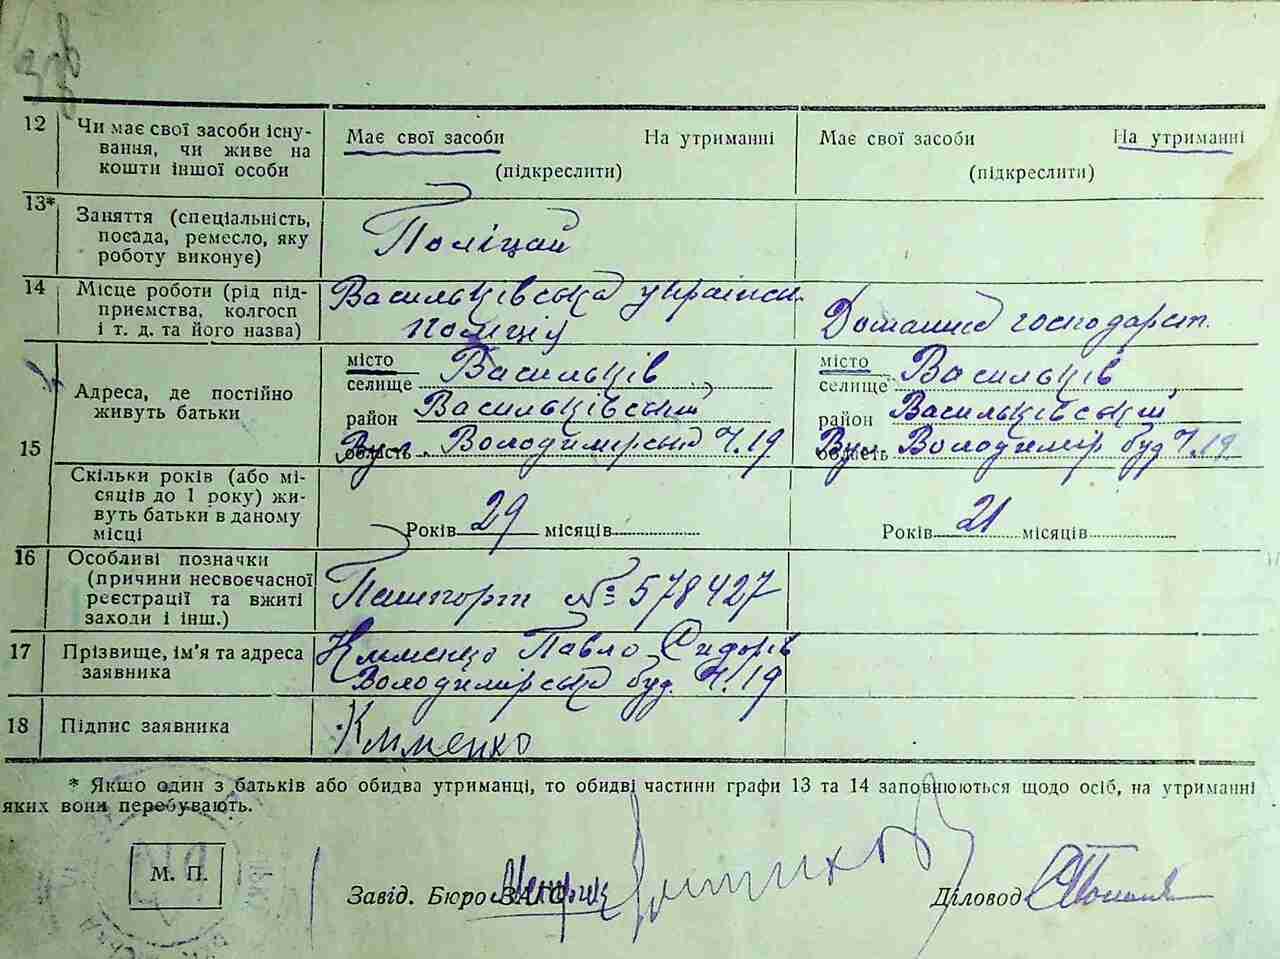 12 Чи має свої засоби існу-
вання, чи живе на
кошти іншої особи
Має свої засоби На утриманні
(підкреслити)
Має свої засоби На утриманні
(підкреслити)
13* Заняття (спеціальність,
посада, ремесло, яку
роботу виконує)
Поліцай
14 Місце роботи (рід під-
приємства, колгосп
і т. д. та його назва)
Васильківська українськ.
поліція
Домашнє господарст.
15
Адреса, де постійно
живуть батьки
місто Васильків
селище
район Васильківський
область Вул. Володимирська Ч. 19
місто Васильків
селище
район Васильківський
область Вул. Володимір буд Ч. 19
Скільки років (або мі-
сяців до 1 року) жи-
вуть батьки в даному
місці
Років 29 місяців
Років 21 місяців
16 Особливі позначки
(причини несвоєчасної
реєстрації та вжиті
заходи і інш.)
Пашпорт № 578427
17 Прізвище, ім'я та адреса
заявника
Клименко Павло Сидорів
Володимірська буд. Ч. 19
18 Підпис заявника
Клименко
* Якщо один з батьків або обидва утриманці, то обидві частини графи 13 та 14 заповнюються щодо осіб, на утриманні
яких вони перебувають.
М. П.
Завід. Бюро ЗАГС
Діловод